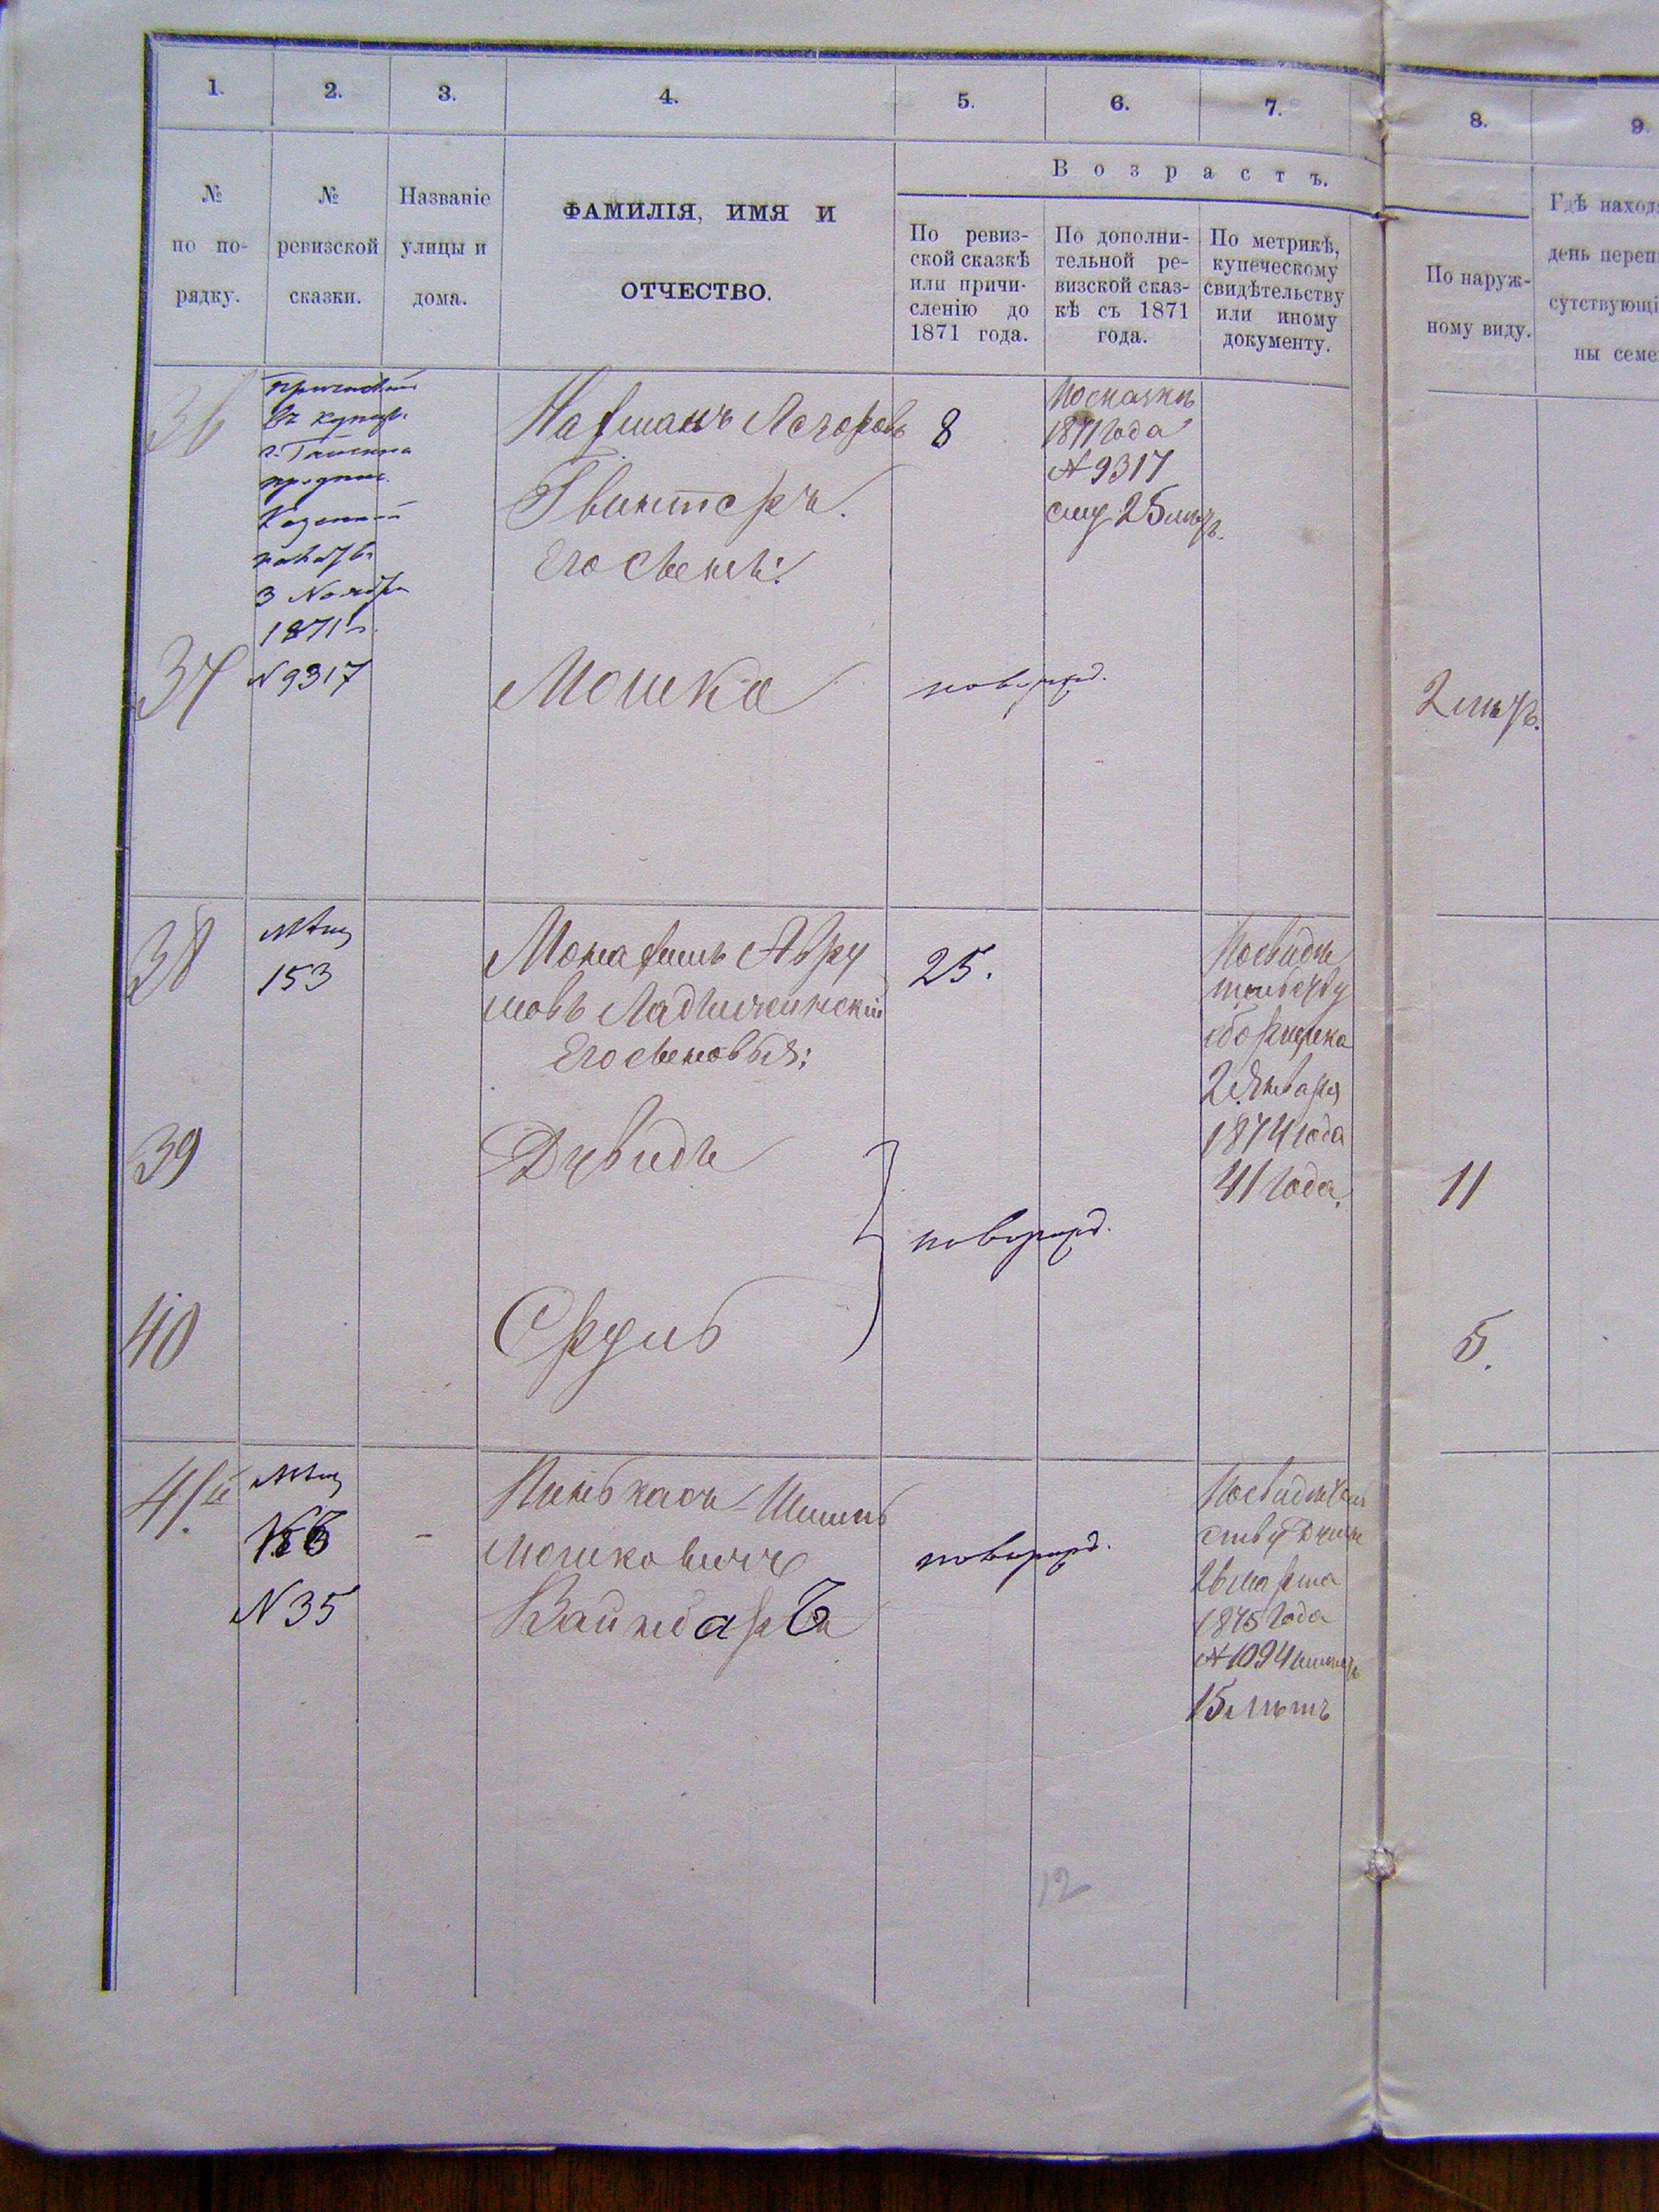 1.
2.
3.
4.
5.
6.
7.
8.
9.
№ по по-рядку.
№ ревизской сказки.
Названіе улицы и дома.
ФАМИЛІЯ, ИМЯ И
ОТЧЕСТВО.
Возрастъ.
По ревиз-
ской сказкѣ
или причи-
сленію до
1871 года.
По дополни-
тельной ре-
визской сказ-
кѣ съ 1871
года.
По метрикѣ,
купеческому
свидѣтельству
или иному
документу.
По наруж-
ному виду.
Гдѣ наход
день переп
сутствующі
ны семе
36
въ
Казенной
3 Ноября
1871 г.
N 9317
Гвинтеръ.
Его сынъ:
8
По сказкѣ
1871 года
№ 9317
ему 25 лѣтъ.
37
Мошко
новорожд.
2 лѣтъ.
38
Мѣщ
153
Авру
мовъ Ладыжинскій
Его сыновья:
25.
По свидѣ
тельству
2 Января
1874 года
41 года.
39
Дувидъ
новорожд.
11
40
Срулъ
5.
41й
Мѣщ
N 35
-
Пинькасъ Шлиомъ
Мошковичъ
Вайнбаръ
новорожд.
По свидѣтель
ству Думы
26 марта
1875 года
№ 1094
15 лѣтъ
12